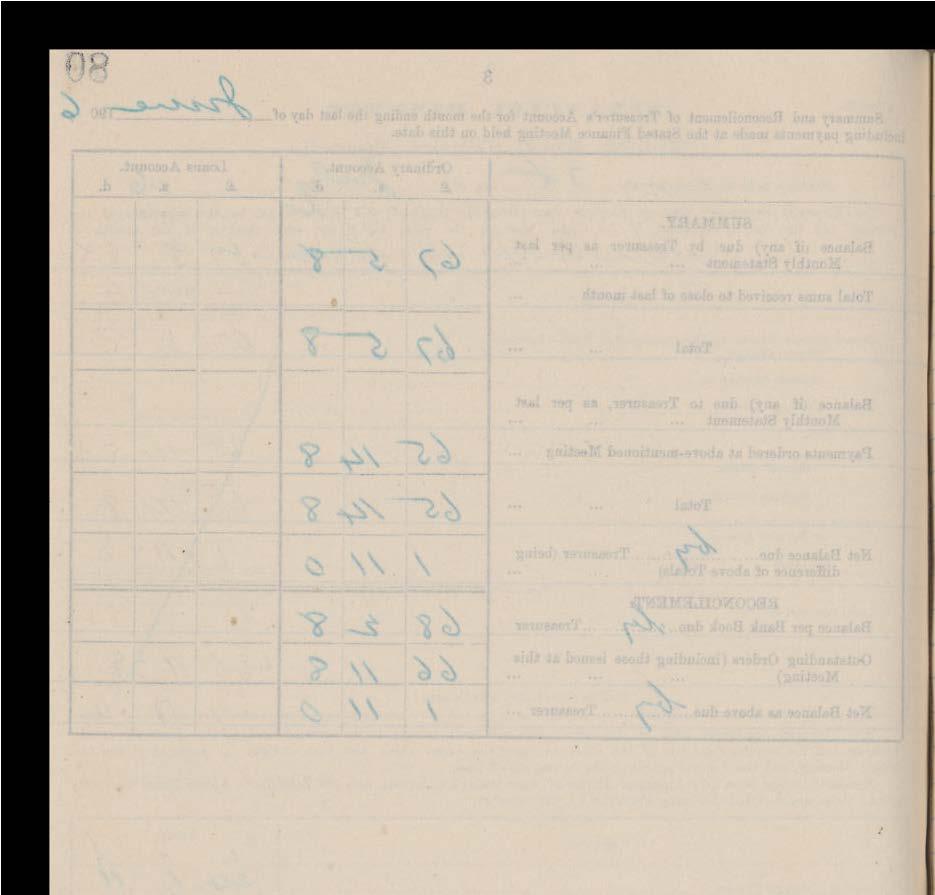 80
3
Summary and Reconcilement of Treasurer's Account for the month ending the last day of June 190 6
including payments made at the Stated Finance Meeting held on this date.
Ordinary Account. Loans Account.
£ s. d. £ s. d.
SUMMARY.
Balance (if any) due by Treasurer as per last
Monthly Statement ... ... ... 67 5 8
Total sums received to close of last month ...
Total ... ... 67 5 8
Balance (if any) due to Treasurer, as per last
Monthly Statement ... ... ...
Payments ordered at above-mentioned Meeting ... 65 14 8
Total ... ... 65 14 8
Net Balance due by Treasurer (being
difference of above Totals) ... ... 1 11 0
RECONCILEMENT:
Balance per Bank Book due by Treasurer 68 2 8
Outstanding Orders (including those issued at this
Meeting) ... ... ... 66 11 8
Net Balance as above due by Treasurer ... 1 11 0